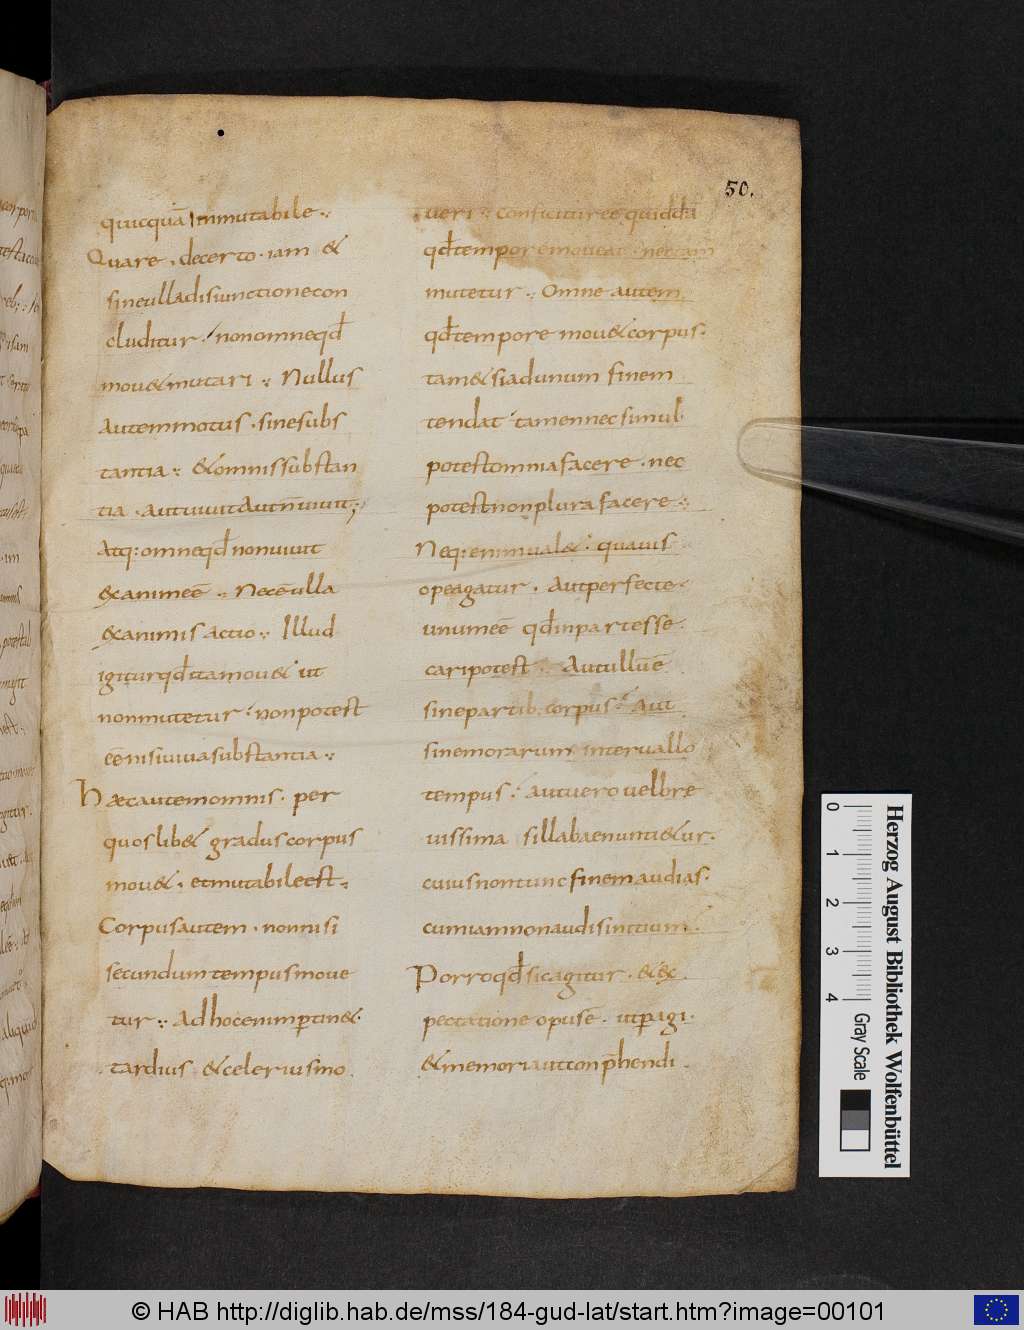 50.
quicquā Inmutabile
Quare . decerto . iam &
sineulladisiunctionecon
cluditur . nonomneqđ
mou&mutari . Nullus
Autemmotus . sinesubs
tantia . &omnissubstan
tia . Autuiuitautn̄uiuit;
Atq: omneqđ nonuiuit
exanimeē . Necēulla
exanimis actio . Illud
igiturqđ itamou& ut
nonmutetur . nonpotest
eēnisiuiuasubstantia .
Haecautemomnis . per
quoslib& gradus corpus
mou& . etmutabileest .
Corpusautem . nonnisi
secundumtempusmoue
tur . Adhocenimp̄tin&
tardius . &celeriusmo
ueri . conficiturēe quiddā
qđtemporemoueat . nectam
mutetur . Omne autem
qđtempore mou&corpus .
tam&siadunum finem
tendat tamennecsimul
potestomniafacere . nec
potestnonplurafacere .
Neq: enimual& . quauis
opeagatur . Autperfecte
unumeē qđinpartesse
caripotest . Autullūē
sinepartib: corpus . Aut
sinemorarum interuallo
tempus . autuero uelbre
uissima sillabaenunti&ur .
cuiusnontunc finem audias .
cumiamnonaudisinitium .
Porroqđ sicagitur . &ex
pectatione opusē . utp̄agi .
&memoriautconp̄hendi
Herzog August Bibliothek Wolfenbüttel
0 1 2 3 4
Gray Scale
© HAB http://diglib.hab.de/mss/184-gud-lat/start.htm?image=00101